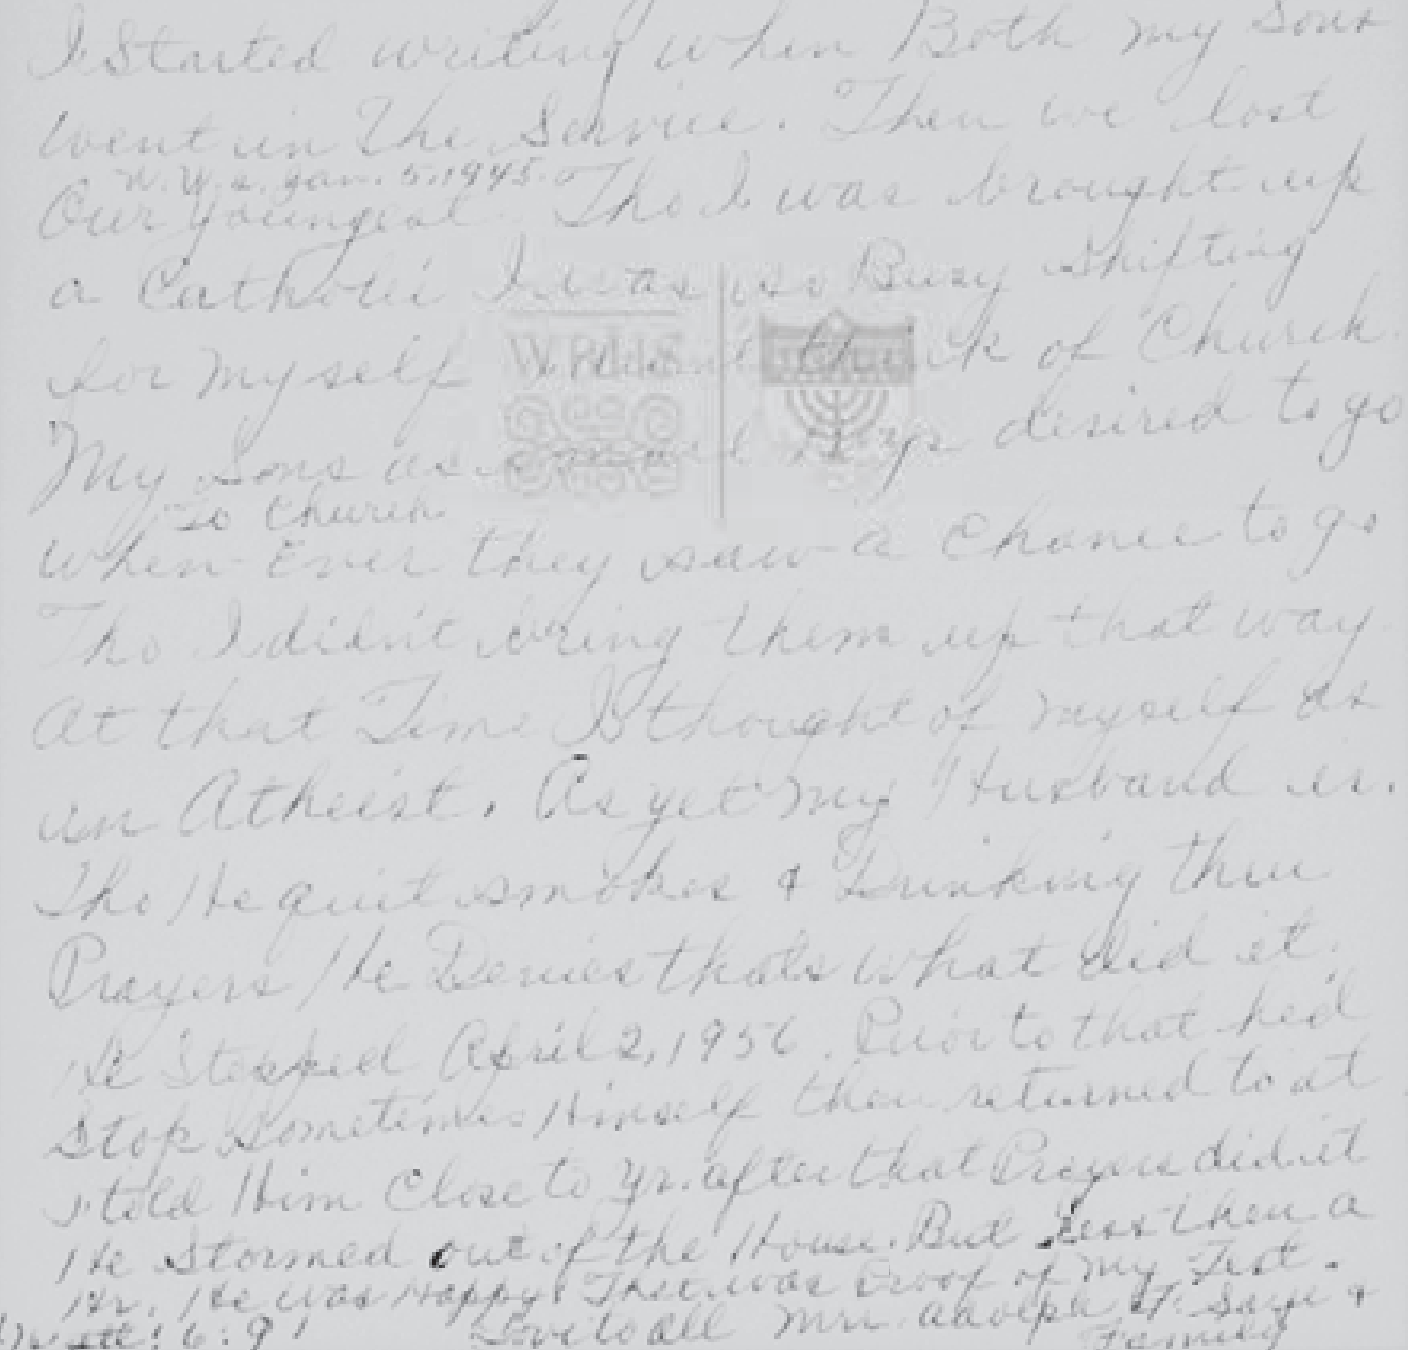 I Started writing when Both my Sons
Went in The Service. Then we lost
W.W.2. Jan. 5. 1945.
Our youngest. Tho I was brought up
a Catholic I was so Busy Shifting
for myself I think of Church.
WRHS
My Sons as small boys desired to go
to Church
When Ever they saw a Chance to go
Tho I didn't bring them up that way.
At that Time I thought of myself as
an Atheist. As yet my Husband is.
Tho He quit smokes & Drinking thru
Prayers He Denies thats what did it.
He Stopped April 2, 1956. Prior to that he'd
Stop Sometimes Himself then returned to it
I told Him Close to yr. after that Prayers did it
He Stormed out of the House. But less then a
Hr. He was Happy. That was Proof of My Test.
Matt: 6:9 Love to All Mrs. Adolph &
Family